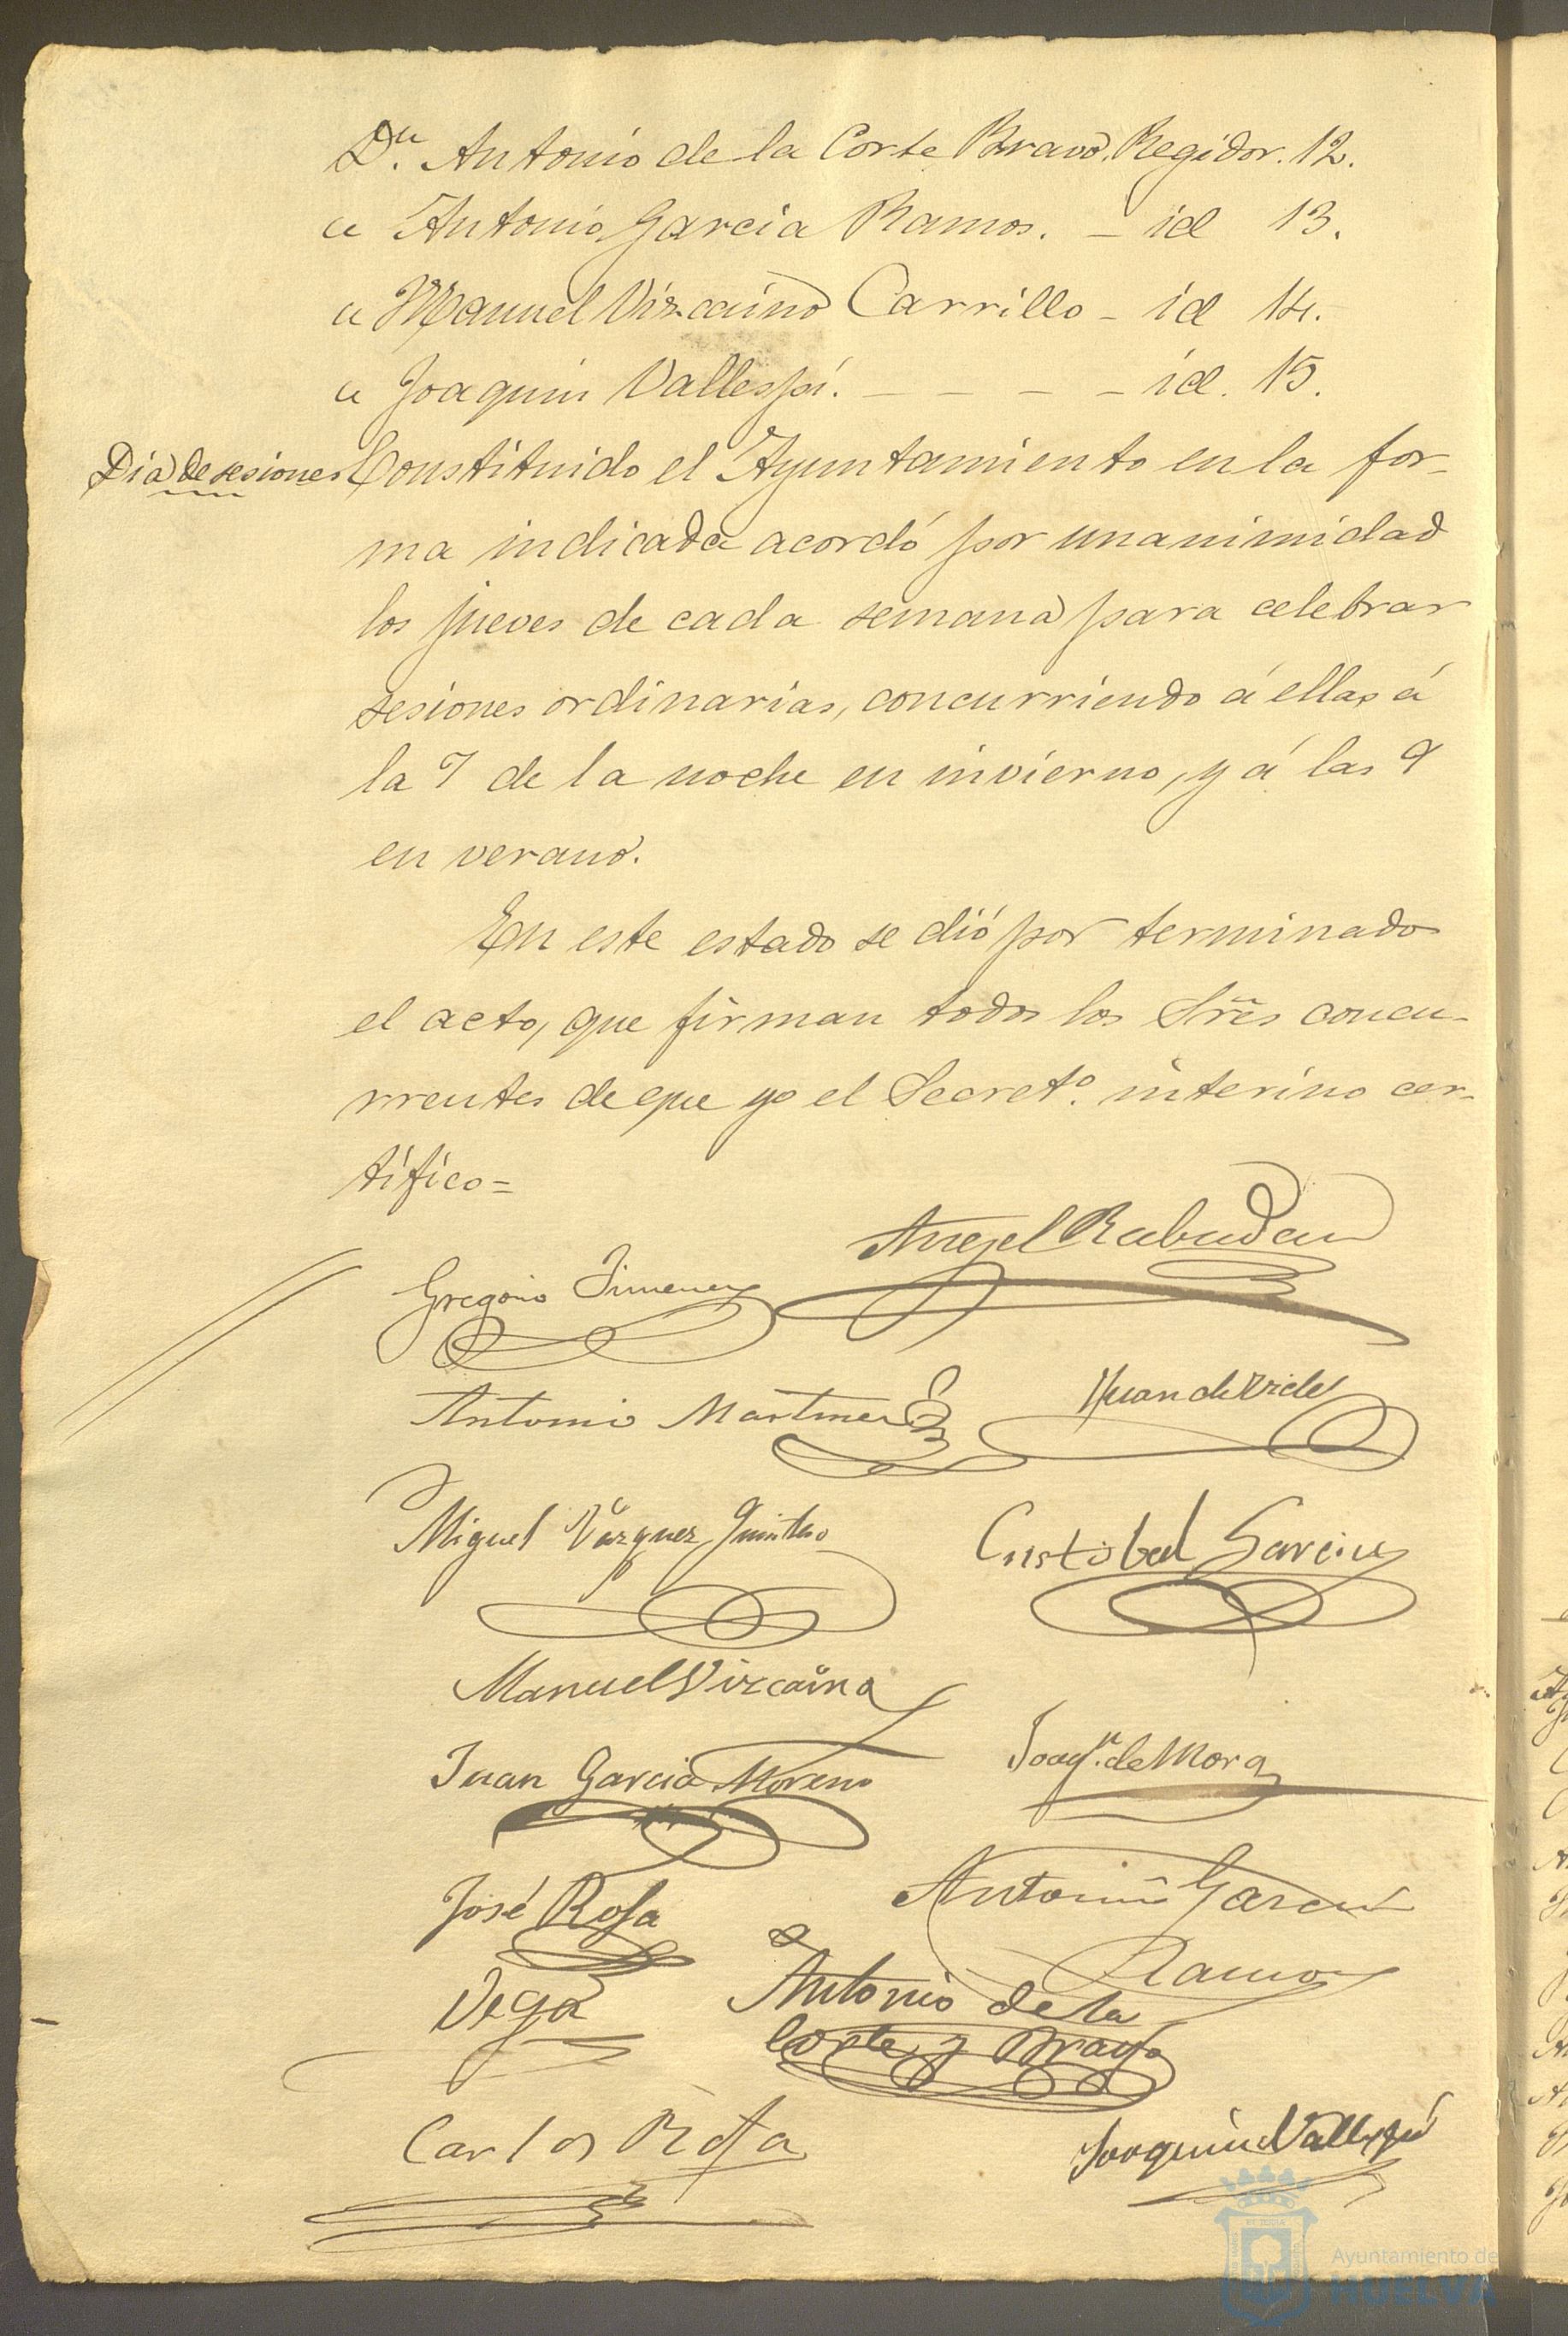 Dn. Antonio de la Corte Bravo. Regidor. 12.
" Antonio Garcia Ramos. _ id 13.
" Manuel Vizcaino Carrillo _ id 14.
" Joaquin Vallespí. _ _ _ _ id. 15.
Dia de sesiones
Constituido el Ayuntamiento en la for-
ma indicada acordó por unanimidad
los jueves de cada semana para celebrar
sesiones ordinarias, concurriendo á ellas á
la 7 de la noche en invierno, y á las 9
en verano.
En este estado se dió por terminado
el acto, que firman todos los Sres concu-
rrentes de que yo el Secreto. interino cer-
tifico=
Angel Rabadan
Gregorio Jimenez
Antonio Martinez
Juan de Vides
Miguel Vázquez Quintero
Cristobal Garcia
Manuel Vizcaino
Juan Garcia Moreno
Joaqn. de Mora
José Rofa
Antonio Garcia
Ramos
Vega
Antonio de la
Corte y Bravo
Carlos Rofa
Joaquin Vallespí
Ayuntamiento de
HUELVA